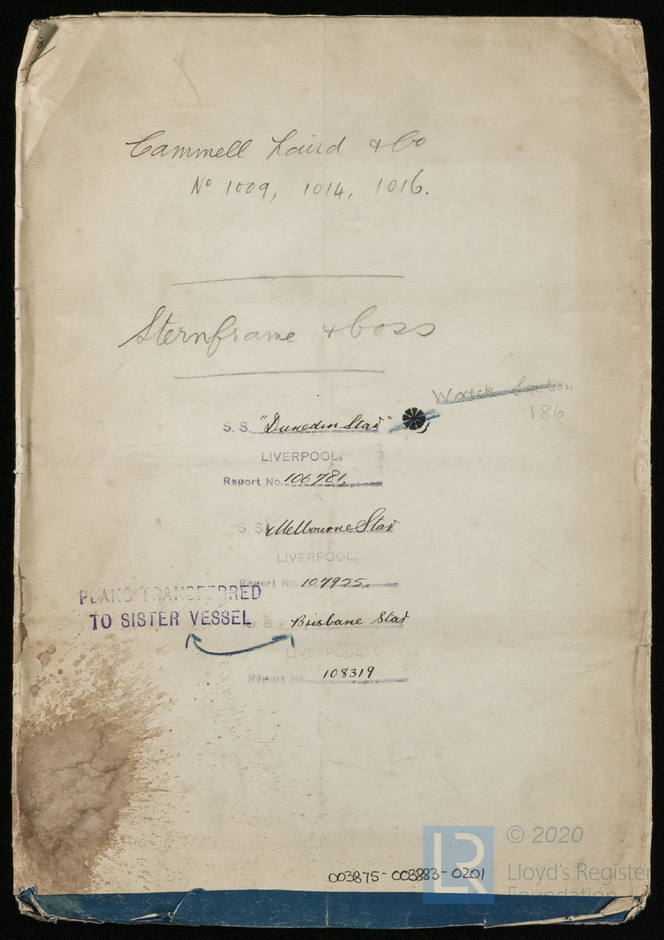 Cammell Laird & Co
No 1009, 1014, 1016.
Sternframe & boss
Wreck Section
186
S. S. "Dunedin Star"
LIVERPOOL.
Report No. 106781.
S. S. Melbourne Star
LIVERPOOL.
Report No. 107925.
PLANS TRANSFERRED
TO SISTER VESSEL
S. S. Brisbane Star
LIVERPOOL.
Report No. 108319
003875-003883-0201
LR
© 2020
Lloyd's Register
Foundation